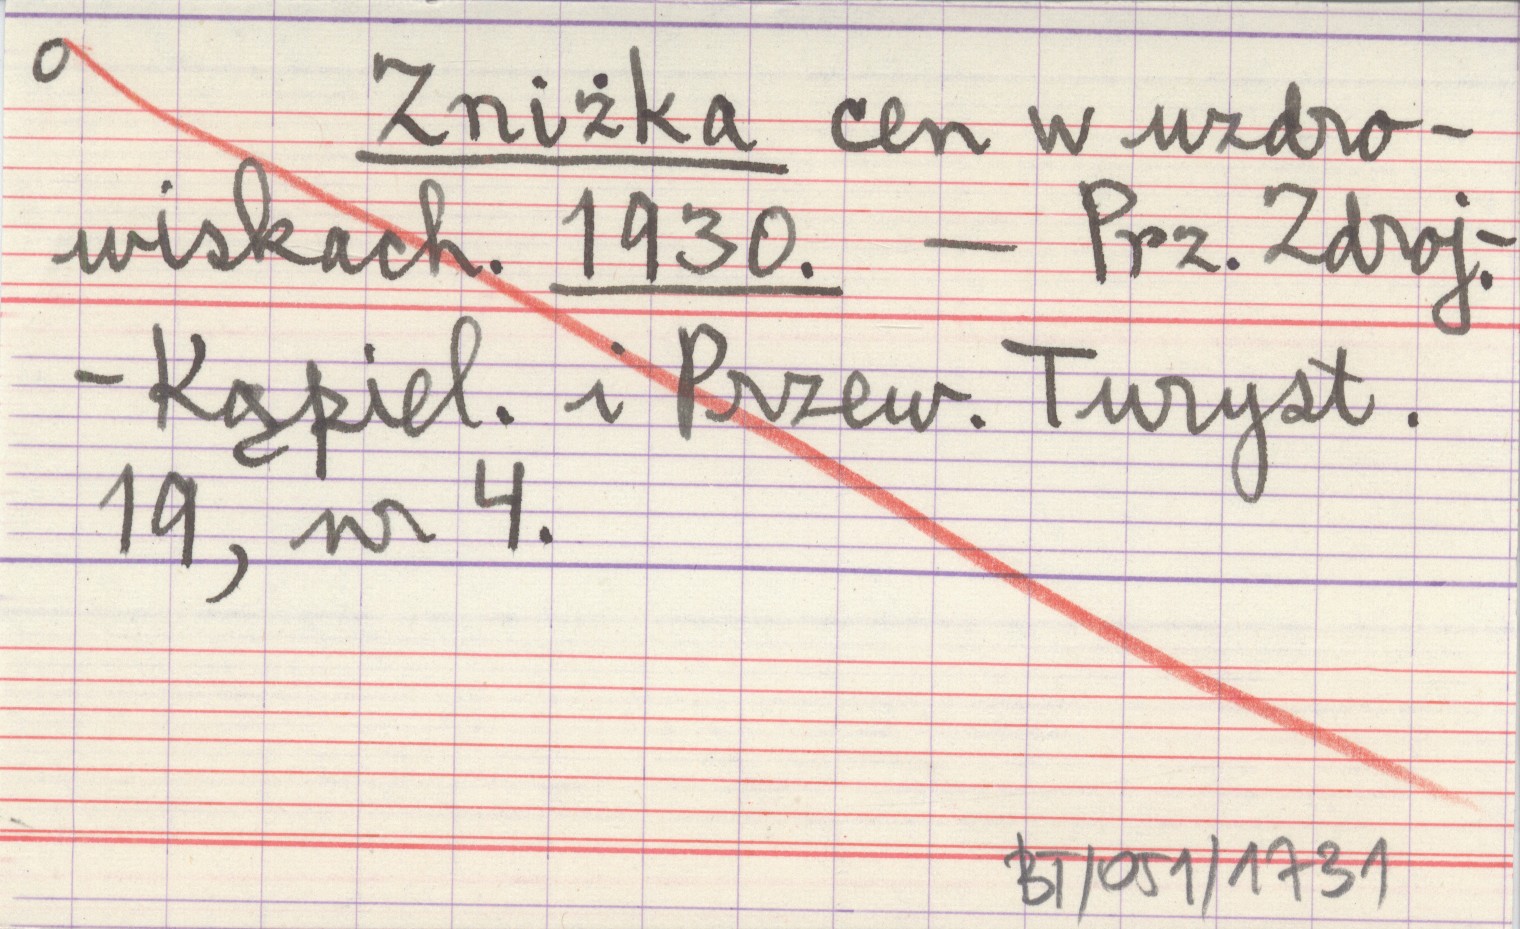 o
Zniżka cen w uzdro-
wiskach. 1930. — Prz. Zdroj.-
-Kąpiel. i Przew. Turyst.
19, nr 4.
BT/051/1731